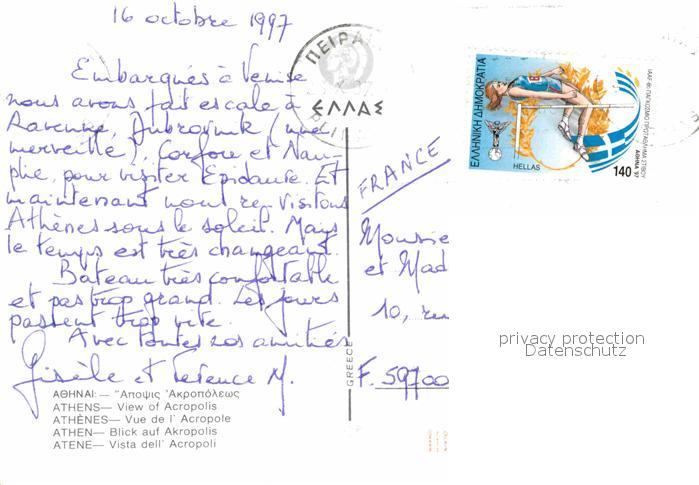 16 octobre 1997
Embarqués à Venise
nous avons fait escale à
Ravenne, Dubrovnik (une
merveille), Corfou et Nau-
plie, pour visiter Epidaure. Et
maintenant nous re-visitons
Athènes sous le soleil. Mais
le temps est très changeant.
Bateau très confortable
et pas trop grand. Les jours
passent trop vite.
Avec toutes nos amitiés
Gisèle et Terence M.
ΑΘΗΝΑΙ:— "Αποψις Ἀκροπόλεως
ATHENS— View of Acropolis
ATHÈNES— Vue de l' Acropole
ATHEN— Blick auf Akropolis
ATENE— Vista dell' Acropoli
GREECE
ΠΕΙΡΑ
ΕΛΛΑΣ
ΕΛΛΗΝΙΚΗ ΔΗΜΟΚΡΑΤΙΑ
HELLAS
140
ΑΘΗΝΑ '97
FRANCE
Monsie
et Mad
10, rue
F. 59700
privacy protection
Datenschutz